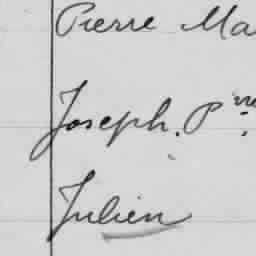 Pierre Ma
Joseph. P.re
Julien